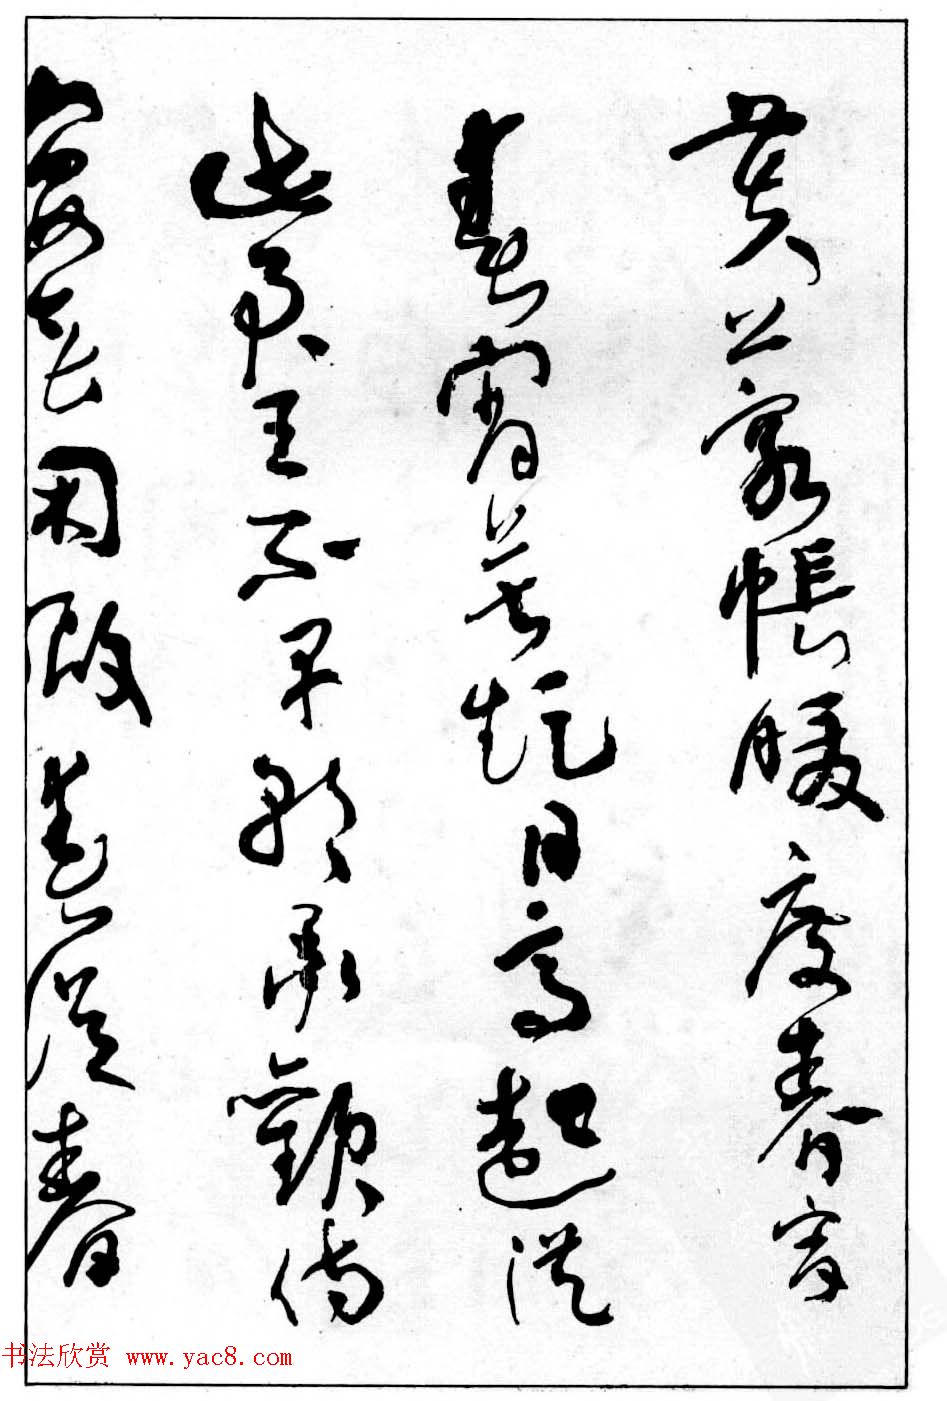 芙蓉帳暖度春宵
春宵苦短日高起從
此君王不早朝承歡侍
宴無閑暇春從春
书法欣赏 www.yac8.com